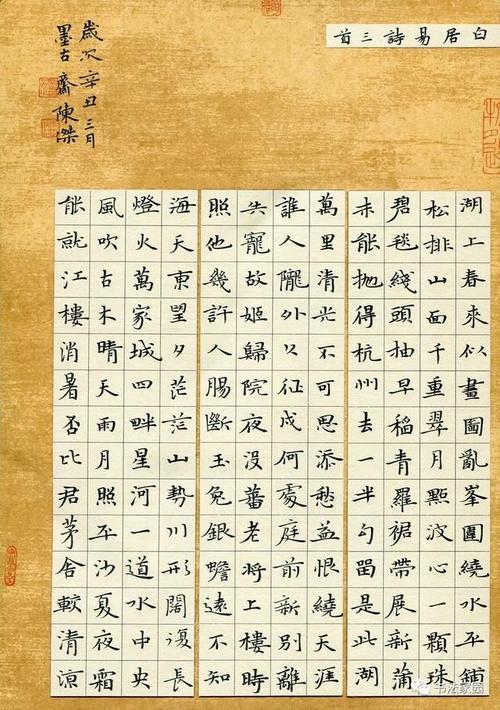 白居易詩三首
湖上春來似畫圖亂峯圍繞水平鋪
松排山面千重翠月點波心一顆珠
碧毯綫頭抽早稻青羅裙帶展新蒲
未能抛得杭州去一半勾留是此湖
萬里清光不可思添愁益恨繞天涯
誰人隴外久征戍何處庭前新別離
失寵故姬歸院夜沒蕃老將上樓時
照他幾許人腸斷玉兔銀蟾遠不知
海天東望夕茫茫山勢川形闊復長
燈火萬家城四畔星河一道水中央
風吹古木晴天雨月照平沙夏夜霜
能就江樓消暑否比君茅舍較清涼
歲次辛丑三月
墨古齋陳
书法家园